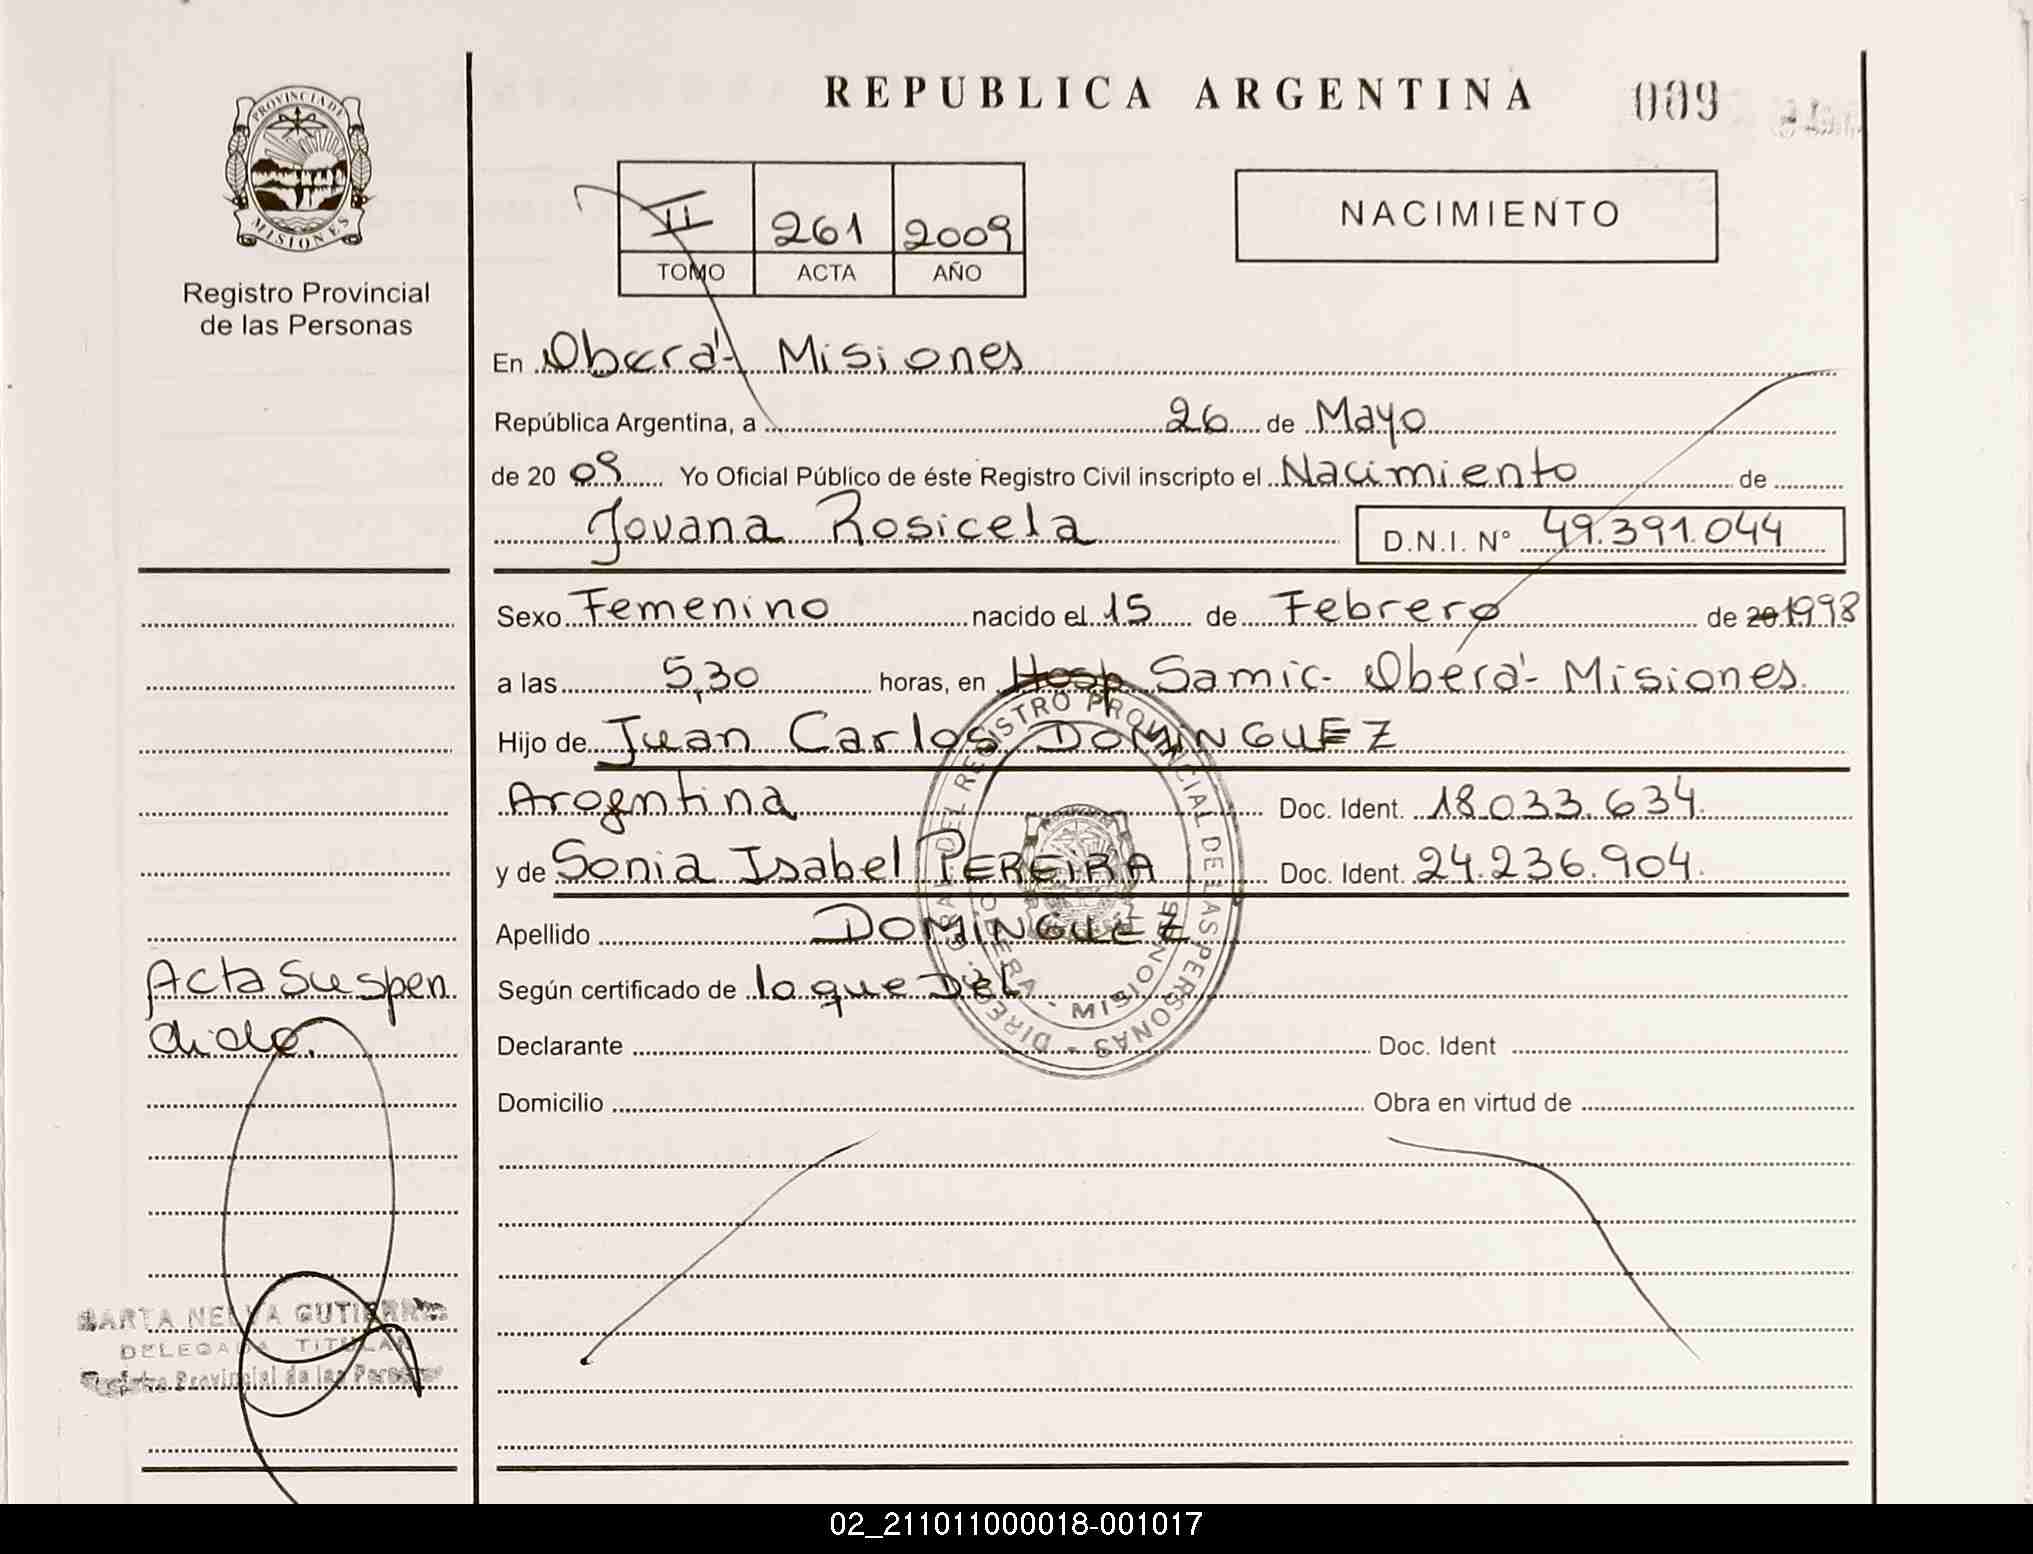 REPUBLICA ARGENTINA 009
PROVINCIA DE
MISIONES
Registro Provincial
de las Personas
II 261 2009
TOMO ACTA AÑO
NACIMIENTO
En Oberá - Misiones
República Argentina, a 26 de Mayo
de 20 09 Yo Oficial Público de éste Registro Civil inscripto el Nacimiento de
Jovana Rosicela D.N.I. N° 49.391.044
Sexo Femenino nacido el 15 de Febrero de 20 1998
a las 5,30 horas, en Hosp Samic - Oberá - Misiones
Hijo de Juan Carlos DOMINGUEZ
Arogntina Doc. Ident. 18.033.634.
y de Sonia Isabel PEREIRA Doc. Ident. 24.236.904.
Apellido DOMINGUEZ
Según certificado de lo que Del
Declarante Doc. Ident
Domicilio Obra en virtud de
Acta Suspen
dida.
DIREC. GRAL. DEL REGISTRO PROVINCIAL DE LAS PERSONAS
OBERA - MISIONES
MARTA NELVA
DELEGADA TITULAR
Registro Provincial de las Personas
02_211011000018-001017